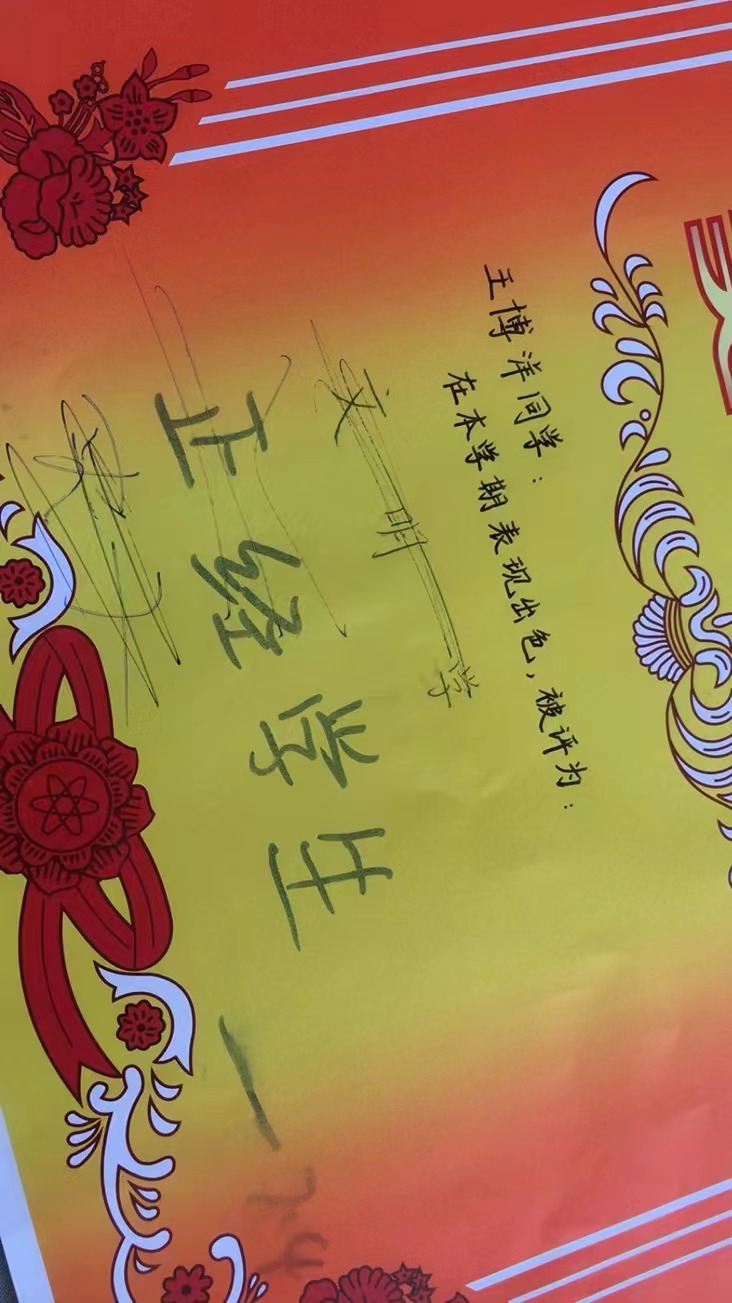 王博洋同学：
在本学期表现出色，被评为：
文明学
正经学生一